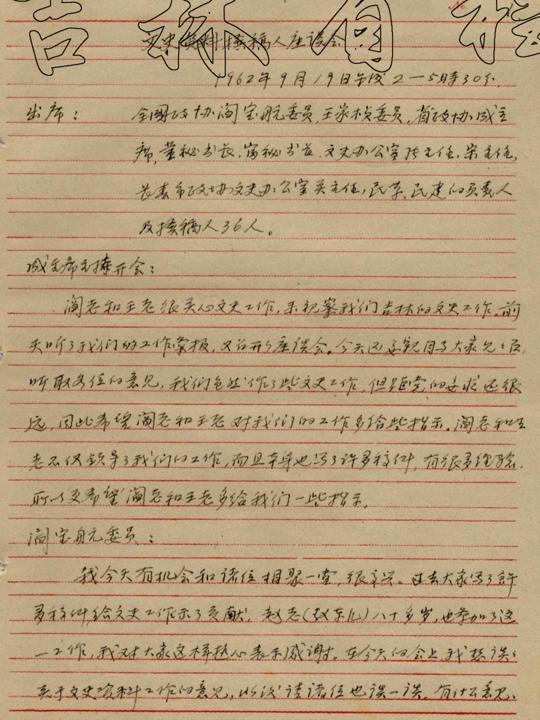 吉林省档
文史资料撰稿人座谈会
1962年9月19日午后2—5时30分
出席：
全国政协阎宝航委员、王家桢委员、省政协臧主
席、董秘书长、富秘书长、文史办公室陈主任、宋主任、
长春市政协文史办公室关主任，民革、民建的负责人
及撰稿人36人。
臧主席主持开会：
阎老和王老很关心文史工作，来视察我们吉林的文史工作。前
天听了我们的工作汇报，又召开了座谈会。今天还要亲自与大家见见面，
听取各位的意见，我们虽然作了些文史工作，但距党的要求还很
远，因此希望阎老和王老对我们的工作多给些指示。阎老和王
老不仅领导了我们的工作，而且本身也写了许多稿件，有很多经验，
所以更希望阎老和王老多给我们一些指示。
阎宝航委员：
我今天有机会和诸位相聚一堂，很高兴。过去大家写了许
多稿件，给文史工作作了贡献，赵老（ ）八十多岁，也参加了这
一工作，我对大家这样热心表示感谢。在今天的会上我想谈谈
关于文史资料工作的意见，以后请诸位也谈一谈。有什么意见、